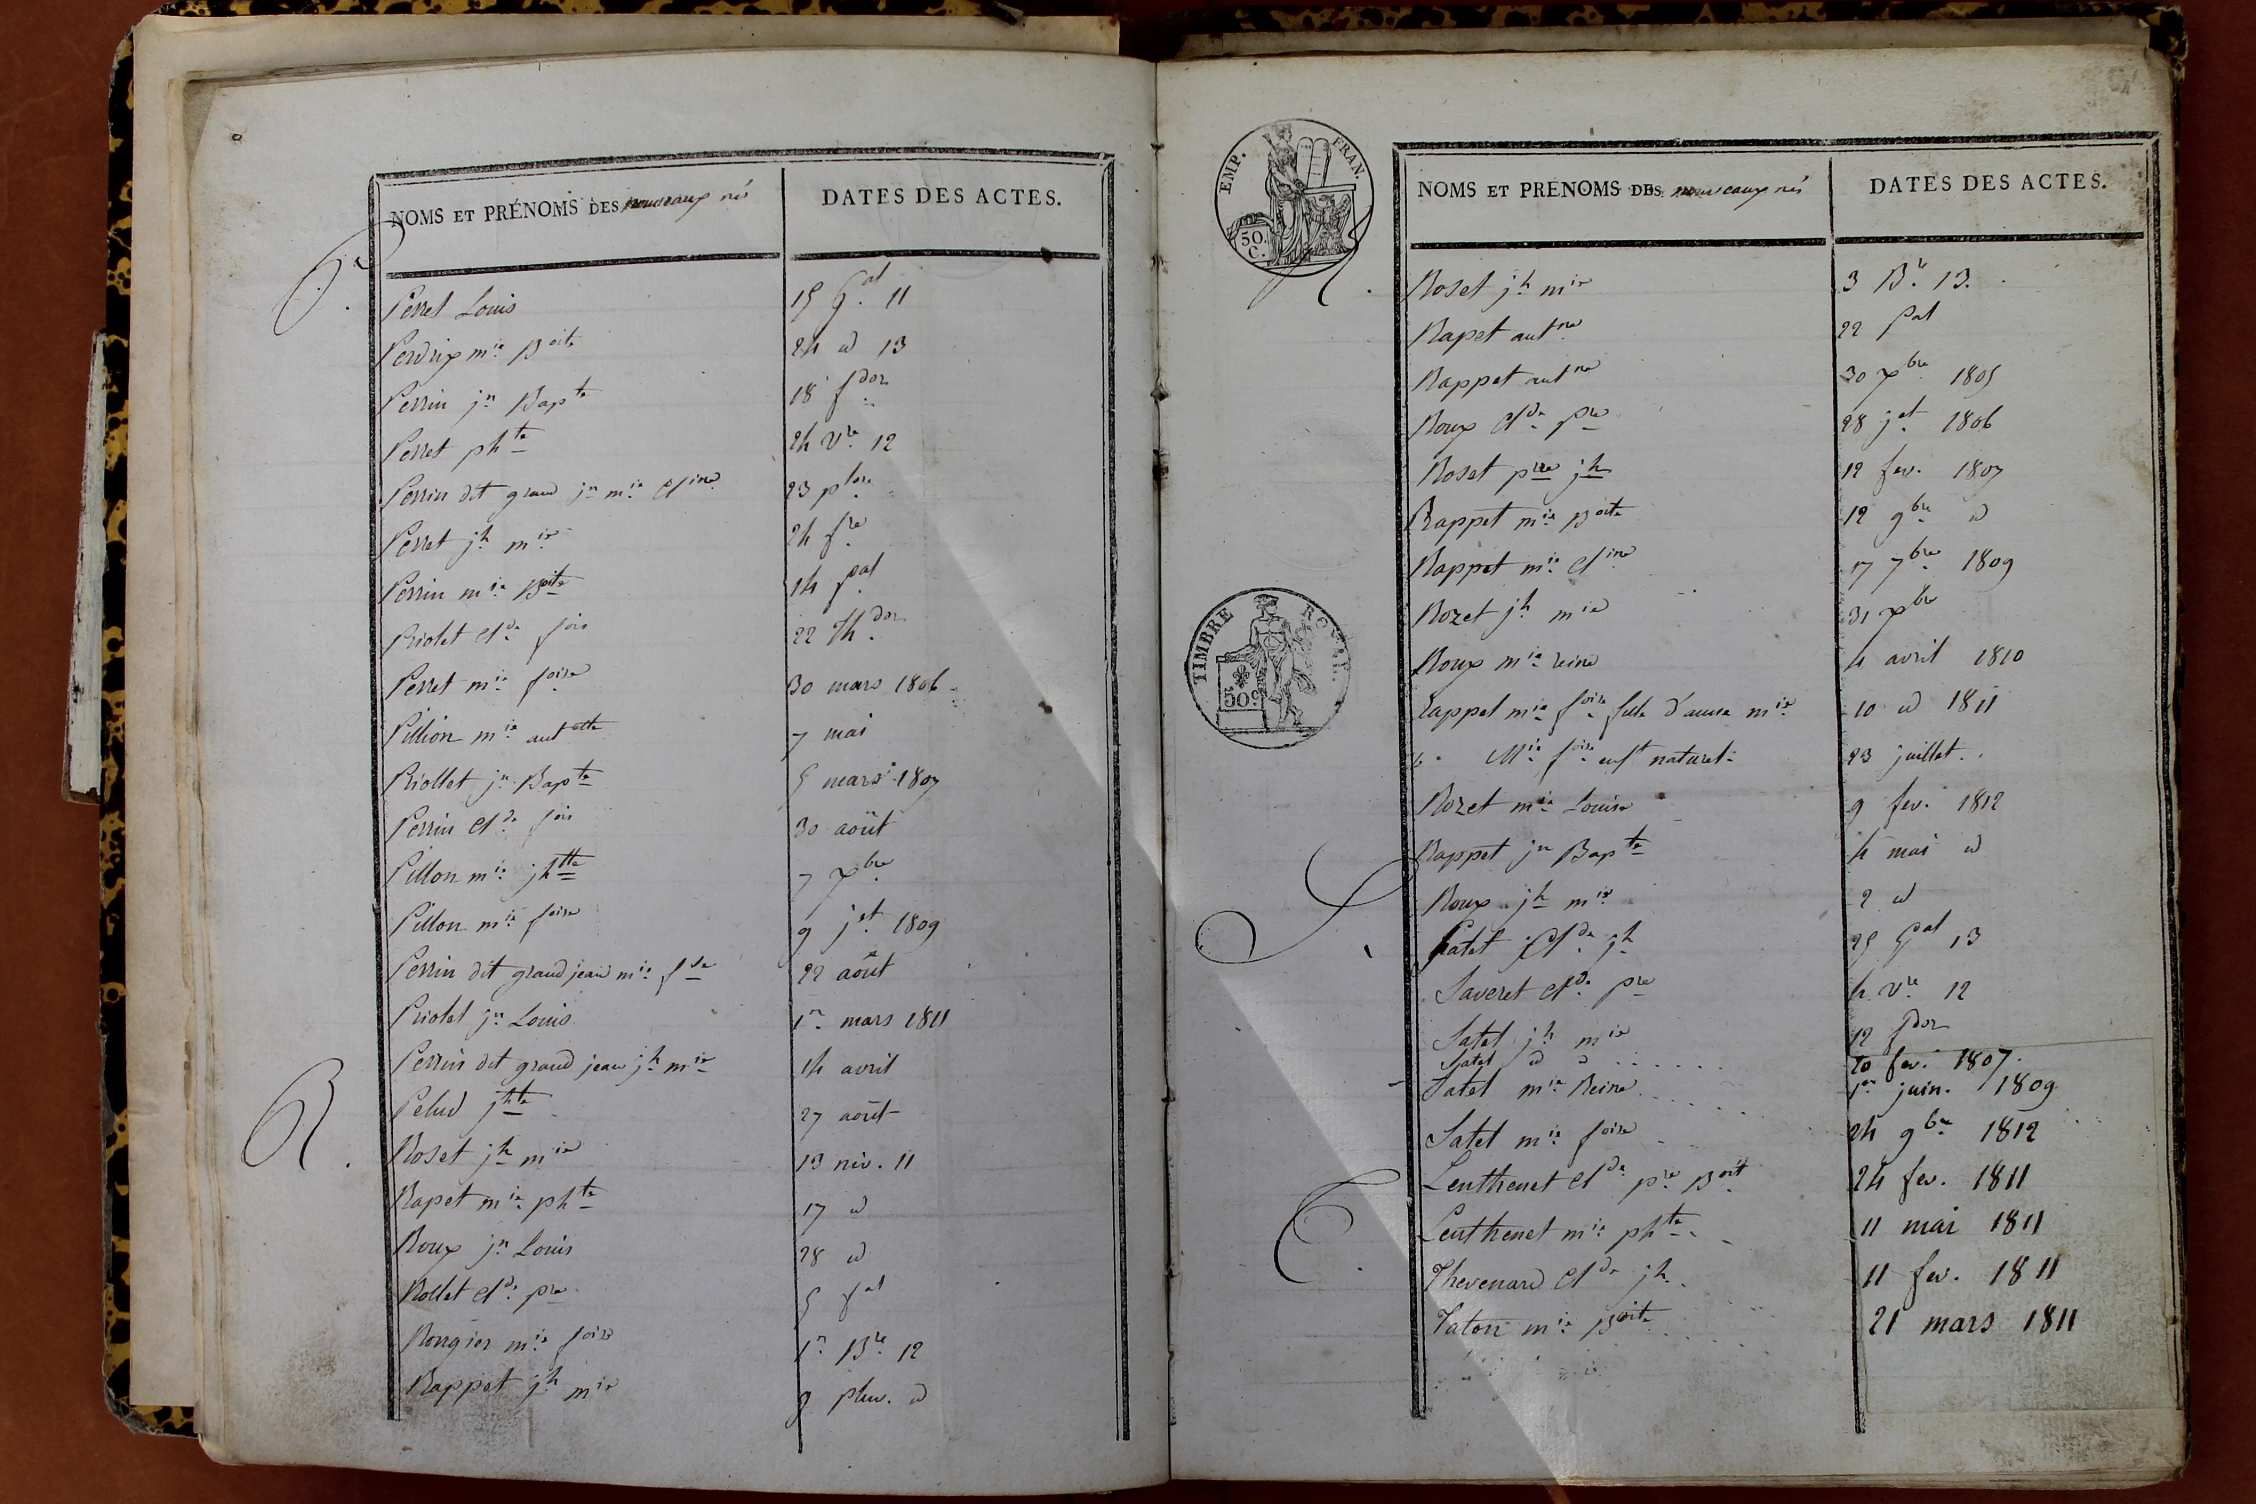 NOMS ET PRÉNOMS DES nouveaux nés DATES DES ACTES.
P.
Perret Louis 15 Gal 11
Perdrix mie Boite 24 d 13
Perrin jn Bapte 18 fdor
Perret phte 24 vre 12
Perrin dit grand jn mie Cline 23 plose
Perret jh mie 24 fre
Perrin mie Boite 14 Pal
Priolet Cde fois 22 Thdor
Perret mie foise 30 mars 1806
Pillion mie antette 7 mai
Priollet jn Bapte 5 mars 1807
Perrin Cde fois 30 août
Pillon mie jhtte 7 xbre
Pillon mie foise 9 jet 1809
Perrin dit grand jean mie fde 22 août
Priolet jn Louis 1er mars 1811
Perrin dit grand jean jh mie 14 avril
Pelud jhte 27 août
R.
Roset jh mie 13 niv. 11
Rapet mie phte 17 d
Roux jn Louis 28 d
Rollet Cde pre 5 fal
Rongier mie foise 1er Bre 12
Rappet jh mie 9 pluv. d
EMP. FRAN.
50. C.
NOMS ET PRÉNOMS DES nouveaux nés DATES DES ACTES.
R.
Roset jh mie 3 Bre 13.
Rapet antne 22 Pal
Rappet antne 30 xbre 1805
Roux Cde Pre 28 jet 1806
Roset pre jh 12 fev. 1807
Rappet mie Boite 12 9bre d
Rappet mie Cline 17 7bre 1809
TIMBRE ROYAL.
50c
Rozet jh mie 31 xbre
Roux mie reine 4 avril 1810
Rappet mie foise fille d'aussi mie 10 d 1811
Mie foise enft naturel 23 juillet.
Rozet mie Louise 9 fev. 1812
Rappet jn Bapte 4 mai d
Roux jh mie 2 d
S.
Satet Cde jh 25 Gal 13
Saveret Cde pre 4 vre 12
Satet jh mie 12 fdor
Satet d d 20 fev. 1807.
Satet mie Reine 1er juin. 1809
Satet mie foise 24 9bre 1812
T.
Teuthenet Cde pre Boit 24 fev. 1811
Teuthenet mie phte 11 mai 1811
Thevenard Cde jh 11 fev. 1811
Taton mie Boite 21 mars 1811